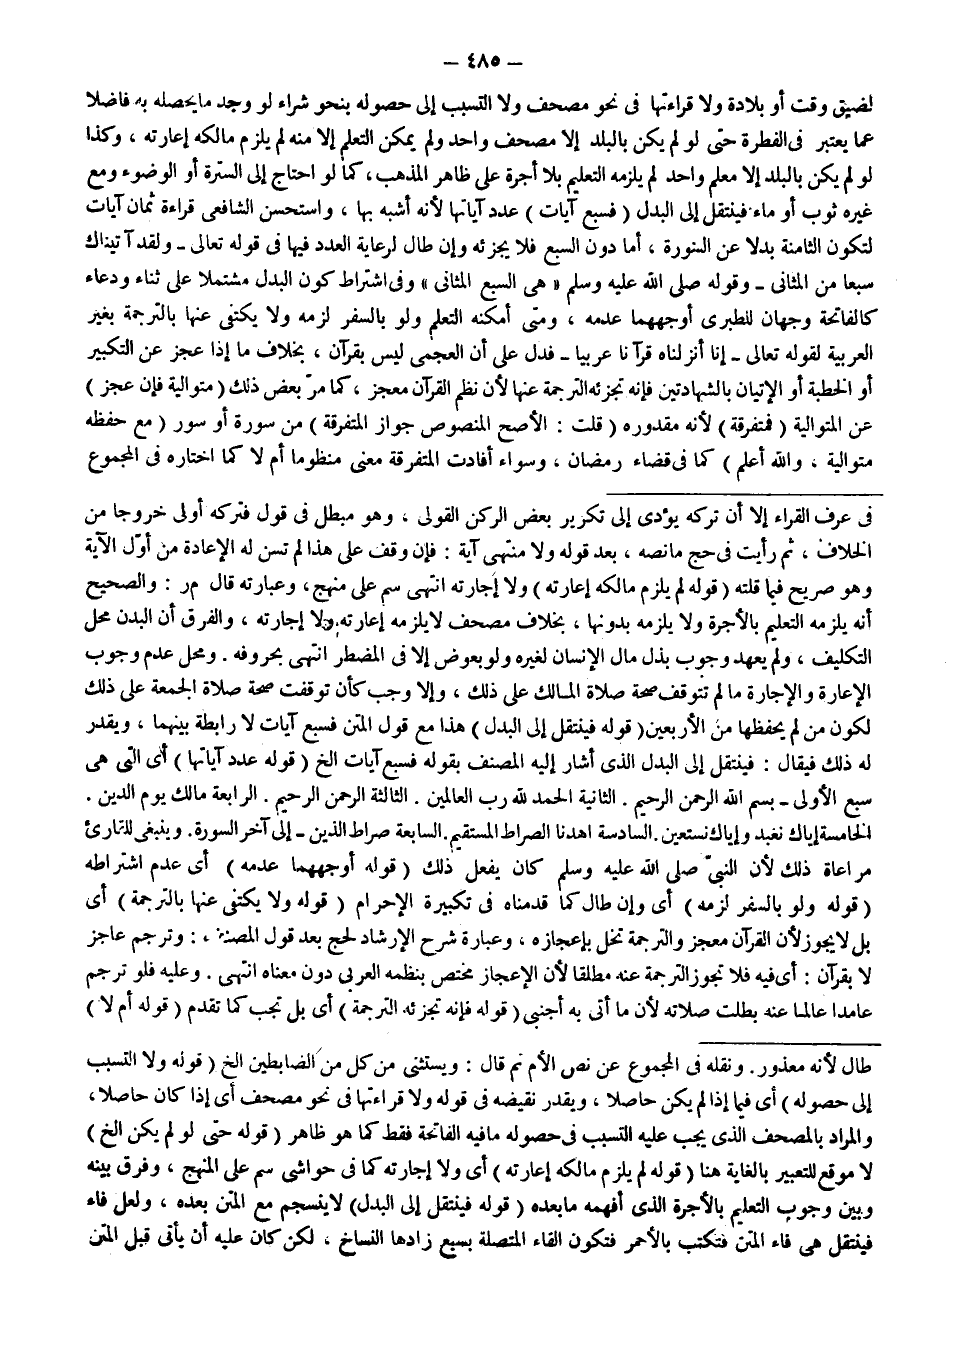 — ٤٨٥ —
لضيق وقت أو بلادة ولا قراءتها فى نحو مصحف ولا التسبب إلى حصوله بنحو شراء لو وجد مايحصله به فاضلا
عما يعتبر فى الفطرة حتى لو لم يكن بالبلد إلا مصحف واحد ولم يمكن التعلم إلا منه لم يلزم مالكه إعارته ، وكذا
لو لم يكن بالبلد إلا معلم واحد لم يلزمه التعليم بلا أجرة على ظاهر المذهب، كما لو احتاج إلى السترة أو الوضوء ومع
غيره ثوب أو ماء فينتقل إلى البدل ( فسبع آيات ) عدد آياتها لأنه أشبه بها ، واستحسن الشافعى قراءة ثمان آيات
لتكون الثامنة بدلا عن السورة ، أما دون السبع فلا يجزئه وإن طال لرعاية العدد فيها فى قوله تعالى ـ ولقد آتيناك
سبعا من المثانى ـ وقوله صلى الله عليه وسلم « هى السبع المثانى » وفى اشتراط كون البدل مشتملا على ثناء ودعاء
كالفاتحة وجهان للطبرى أوجههما عدمه ، ومتى أمكنه التعلم ولو بالسفر لزمه ولا يكتفى عنها بالترجمة بغير
العربية لقوله تعالى ـ إنا أنزلناه قرآنا عربيا ـ فدل على أن العجمى ليس بقرآن ، بخلاف ما إذا عجز عن التكبير
أو الخطبة أو الإتيان بالشهادتين فإنه تجزئه الترجمة عنها لأن نظم القرآن معجز ، كما مرّ بعض ذلك ( متوالية فإن عجز )
عن المتوالية ( فمتفرقة ) لأنه مقدوره ( قلت : الأصح المنصوص جواز المتفرقة ) من سورة أو سور ( مع حفظه
متوالية ، والله أعلم ) كما فى قضاء رمضان ، وسواء أفادت المتفرقة معنى منظوما أم لا كما اختاره فى المجموع
فى عرف القراء إلا أن تركه يؤدى إلى تكرير بعض الركن القولى ، وهو مبطل فى قول فتركه أولى خروجا من
الخلاف ، ثم رأيت فى حج مانصه ، بعد قوله ولا منتهى آية : فإن وقف على هذا لم تسن له الإعادة من أوّل الآية
وهو صريح فيما قلته ( قوله لم يلزم مالكه إعارته ) ولا إجارته انتهى سم على منهج، وعبارته قال مر : والصحيح
أنه يلزمه التعليم بالأجرة ولا يلزمه بدونها ، بخلاف مصحف لايلزمه إعارته ولا إجارته ، والفرق أن البدن محل
التكليف ، ولم يعهد وجوب بذل مال الإنسان لغيره ولو بعوض إلا فى المضطر انتهى بحروفه . ومحل عدم وجوب
الإعارة والإجارة ما لم تتوقف صحة صلاة المالك على ذلك ، وإلا وجب كأن توقفت صحة صلاة الجمعة على ذلك
لكون من لم يحفظها من الأربعين ( قوله فينتقل إلى البدل ) هذا مع قول المتن فسبع آيات لا رابطة بينهما ، ويقدر
له ذلك فيقال : فينتقل إلى البدل الذى أشار إليه المصنف بقوله فسبع آيات الخ ( قوله عدد آياتها ) أى التى هى
سبع الأولى ـ بسم الله الرحمن الرحيم . الثانية الحمد لله رب العالمين . الثالثة الرحمن الرحيم . الرابعة مالك يوم الدين .
الخامسة إياك نعبد وإياك نستعين . السادسة اهدنا الصراط المستقيم . السابعة صراط الذين ـ إلى آخر السورة . وينبغى للقارئ
مراعاة ذلك لأن النبىّ صلى الله عليه وسلم كان يفعل ذلك ( قوله أوجههما عدمه ) أى عدم اشتراطه
( قوله ولو بالسفر لزمه ) أى وإن طال كما قدمناه فى تكبيرة الإحرام ( قوله ولا يكتفى عنها بالترجمة ) أى
بل لايجوز لأن القرآن معجز والترجمة تخل بإعجازه ، وعبارة شرح الإرشاد لحج بعد قول المصنف : وترجم عاجز
لا بقرآن : أى فيه فلا تجوز الترجمة عنه مطلقا لأن الإعجاز مختص بنظمه العربى دون معناه انتهى . وعليه فلو ترجم
عامدا عالما عنه بطلت صلاته لأن ما أتى به أجنبى ( قوله فإنه تجزئه الترجمة ) أى بل تجب كما تقدم ( قوله أم لا )
طال لأنه معذور . ونقله فى المجموع عن نص الأم ثم قال : ويستثنى من كل من الضابطين الخ ( قوله ولا التسبب
إلى حصوله ) أى فيما إذا لم يكن حاصلا ، ويقدر نقيضه فى قوله ولا قراءتها فى نحو مصحف أى إذا كان حاصلا،
والمراد بالمصحف الذى يجب عليه التسبب فى حصوله مافيه الفاتحة فقط كما هو ظاهر ( قوله حتى لو لم يكن الخ )
لا موقع للتعبير بالغاية هنا ( قوله لم يلزم مالكه إعارته ) أى ولا إجارته كما فى حواشى سم على المنهج ، وفرق بينه
وبين وجوب التعليم بالأجرة الذى أفهمه مابعده ( قوله فينتقل إلى البدل) لاينسجم مع المتن بعده ، ولعل فاء
فينتقل هى فاء المتن فتكتب بالأحمر فتكون الفاء المتصلة بسبع زادها النساخ ، لكن كان عليه أن يأتى قبل المتن